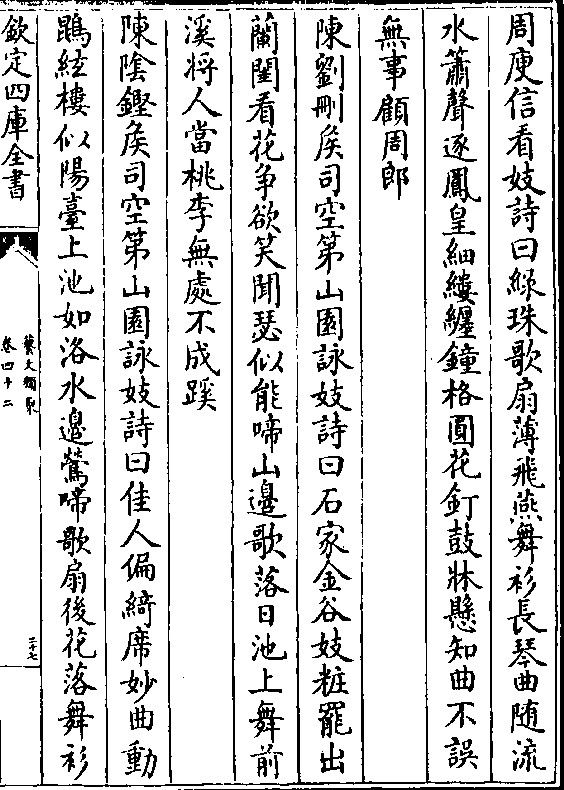 周庾信看妓詩曰綠珠歌扇薄飛燕舞衫長琴曲随流
水簫聲逐鳳皇細縷纒鐘格圓花釘鼓牀懸知曲不誤
無事顧周郎
陳劉刪侯司空第山園詠妓詩曰石家金谷妓粧罷出
蘭閨看花争欲笑聞瑟似能啼山邊歌落日池上舞前
溪将人當桃李無處不成蹊
陳陰鏗侯司空第山園詠妓詩曰佳人偏綺席妙曲動
鵾絃樓似陽臺上池如洛水邊鶯啼歌扇後花落舞衫
欽定四庫全書
藝文類聚
卷四十二
二十七